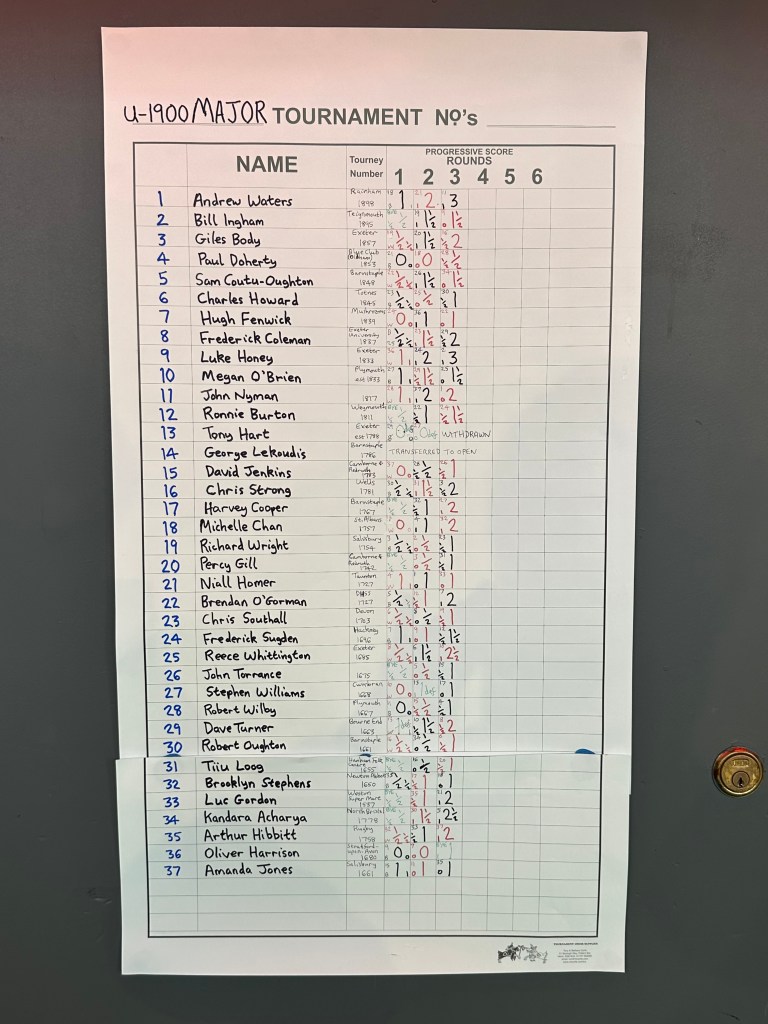 U-1900 MAJOR TOURNAMENT No's
NAME Tourney Number PROGRESSIVE SCORE ROUNDS 1 2 3 4 5 6
1 Andrew Waters 1898 1 2 3
2 Bill Ingham Teignmouth 1895 ½ 1½ 1½
3 Giles Body Exeter 1857 ½ 1½ 2
4 Paul Doherty 1853 0 0 ½
5 Sam Coutu-Oughton Barnstaple 1848 ½ 1½ 1½
6 Charles Howard Totnes 1845 ½ ½ 1
7 Hugh Fenwick 1839 0 1 1
8 Frederick Coleman Exeter University 1837 ½ 1½ 2
9 Luke Honey Exeter 1833 1 2 3
10 Megan O'Brien Plymouth est 1833 1 1½ 1½
11 John Nyman 1817 1 2 2
12 Ronnie Burton Weymouth 1811 ½ 1 1½
13 Tony Hart Exeter est 1788 0 def 0 def WITHDRAWN
14 George Lekoudis Barnstaple 1786 TRANSFERRED TO OPEN
15 David Jenkins Camborne & Redruth 1783 0 ½ 1
16 Chris Strong Wells 1781 ½ 1½ 2
17 Harvey Cooper Barnstaple 1767 ½ 1 2
18 Michelle Chan St. Albans 1757 0 1 2
19 Richard Wright Salisbury 1754 ½ ½ 1
20 Percy Gill Camborne & Redruth 1742 ½ ½ 1
21 Niall Homer Taunton 1727 1 1 1
22 Brendan O'Gorman DHSS 1727 ½ 1 2
23 Chris Southall Devon 1703 ½ ½ 1
24 Frederick Sugden Hackney 1696 1 1 1½
25 Reece Whittington Exeter 1685 ½ 1½ 2½
26 John Torrance 1675 ½ ½ 1
27 Stephen Williams Cwmbran 1668 0 1 def 1
28 Robert Wilby Plymouth 1667 0 ½ 1
29 Dave Turner Bourne End 1663 1 def 1½ 2
30 Robert Oughton Barnstaple 1661 ½ ½ 1
31 Tiiu Loog 1655 ½ ½ 1
32 Brooklyn Stephens Newton Abbot 1650 ½ 1 1
33 Luc Gordon Weston Super Mare ½ 1 2
34 Kandara Acharya North Bristol 1778 ½ 1½ 2½
35 Arthur Hibbitt Rugby 1758 ½ 1 2
36 Oliver Harrison Stratford-upon-Avon 1680 0 0
37 Amanda Jones Salisbury 1661 1 1 1